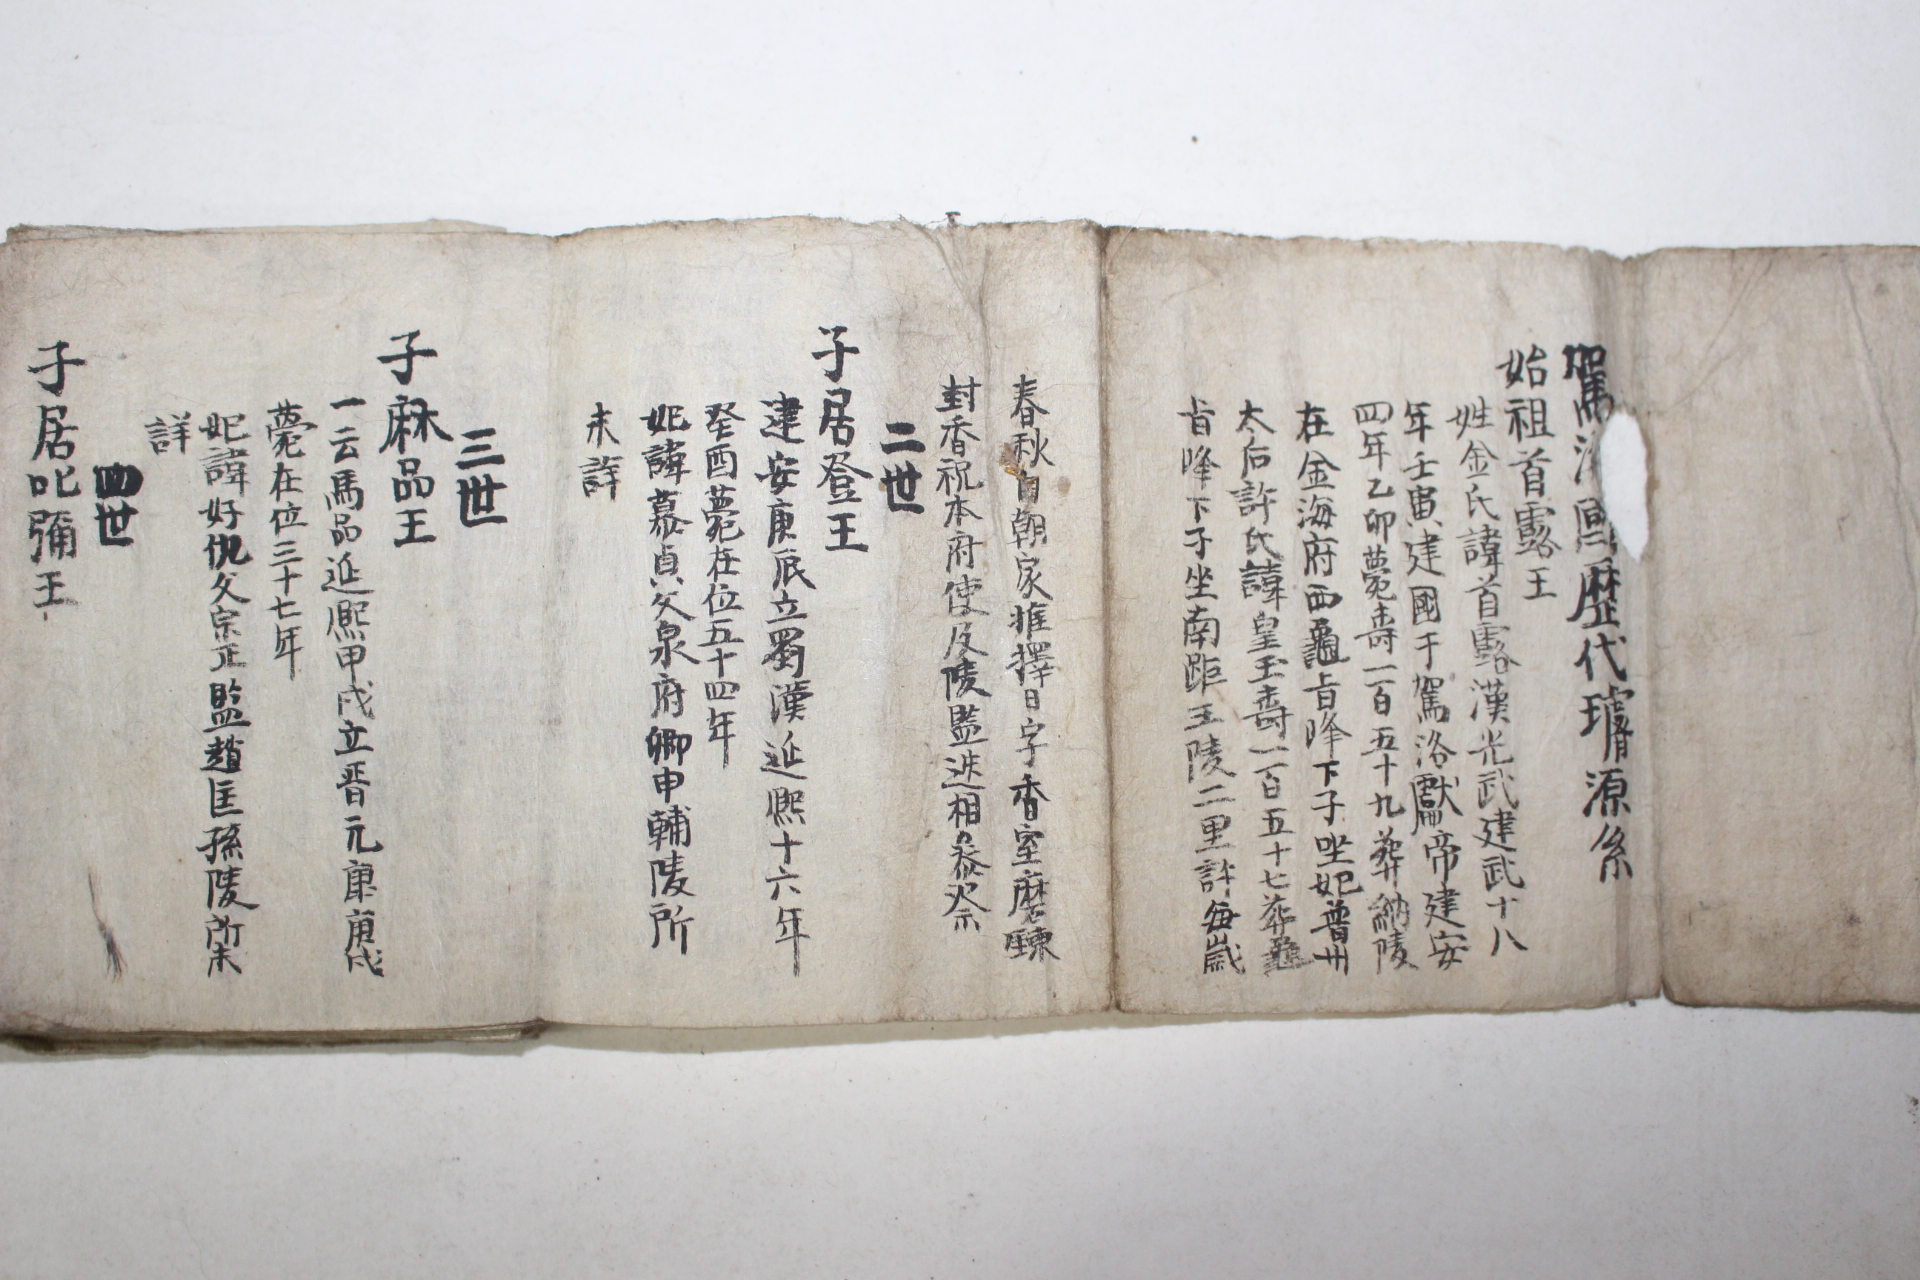 駕洛國歷代璿源系
始祖首露王
姓金氏諱首露漢光武建武十八
年壬寅建國于駕洛獻帝建安
四年乙卯薨壽一百五十九葬納陵
在金海府西龜旨峰下子坐妃普州
太后許氏諱皇玉壽一百五十七葬龜
旨峰下子坐南距王陵二里許每歲
春秋自朝家推擇日字香室磨鍊
封香祝本府使及陵監進相叅祭
二世
子居登王
建安庚辰立蜀漢延熙十六年
癸酉薨在位五十四年
妃諱慕貞父泉府卿申輔陵所
未詳
三世
子麻品王
一云馬品延熙甲戌立晋元康庚戌
薨在位三十七年
妃諱好仇父宗正監趙匡孫陵所未
詳
四世
子居叱彌王